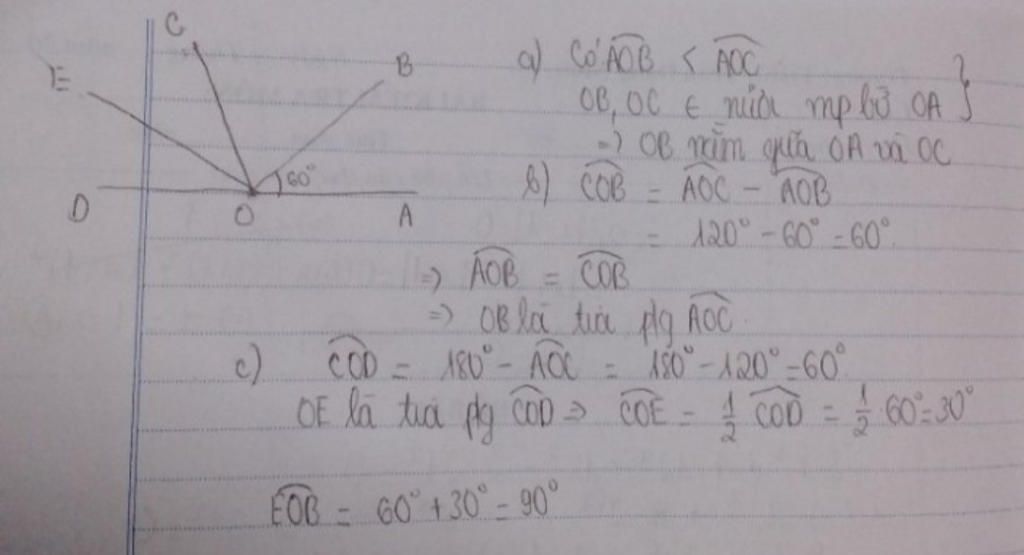 C
E
B
60°
D
O
A
a) Có AOB < AOC
OB, OC ∈ nửa mp bờ OA }
=> OB nằm giữa OA và OC
b) COB = AOC - AOB
= 120° - 60° = 60°.
=> AOB = COB
=> OB là tia p/g AOC.
c) COD = 180° - AOC = 180° - 120° = 60°
OE là tia p/g COD => COE = 1/2 COD = 1/2 · 60° = 30°
EOB = 60° + 30° = 90°